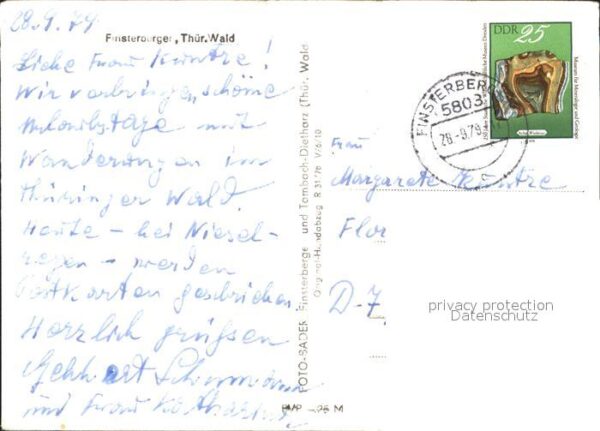 28.9.79
Finsterbergen, Thür. Wald
Liebe Frau Kuntze!
Wir verbringen schöne
Urlaubstage mit
Wanderungen im
Thüringer Wald.
Heute - bei Niesel-
regen - werden
Postkarten geschrieben.
Herzlich grüßen
Gebhart
und Frau Katharina
FOTO-BADER Finsterberge und Tambach-Dietharz (Thür. Wald
Original-Handabzug R 31/76 V/6/10
EVP -,25 M
DDR 25
Museum für Mineralogie und Geologie
FINSTERBERGEN
5803
28.-9.79
Frau
Margarete Kuntze
Flor
D-7
privacy protection
Datenschutz